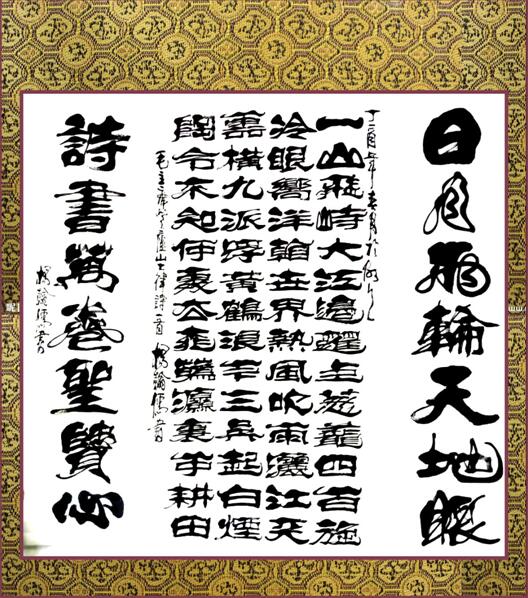 日月兩輪天地眼
丁酉年春月於
一山飛峙大江邊躍上蔥龍四百旋
冷眼嚮洋看世界熱風吹雨灑江天
雲橫九派浮黃鶴浪下三吳起白煙
陶令不知何處去桃花源裏可耕田
毛主席登廬山七律詩一首
詩書萬卷聖賢心